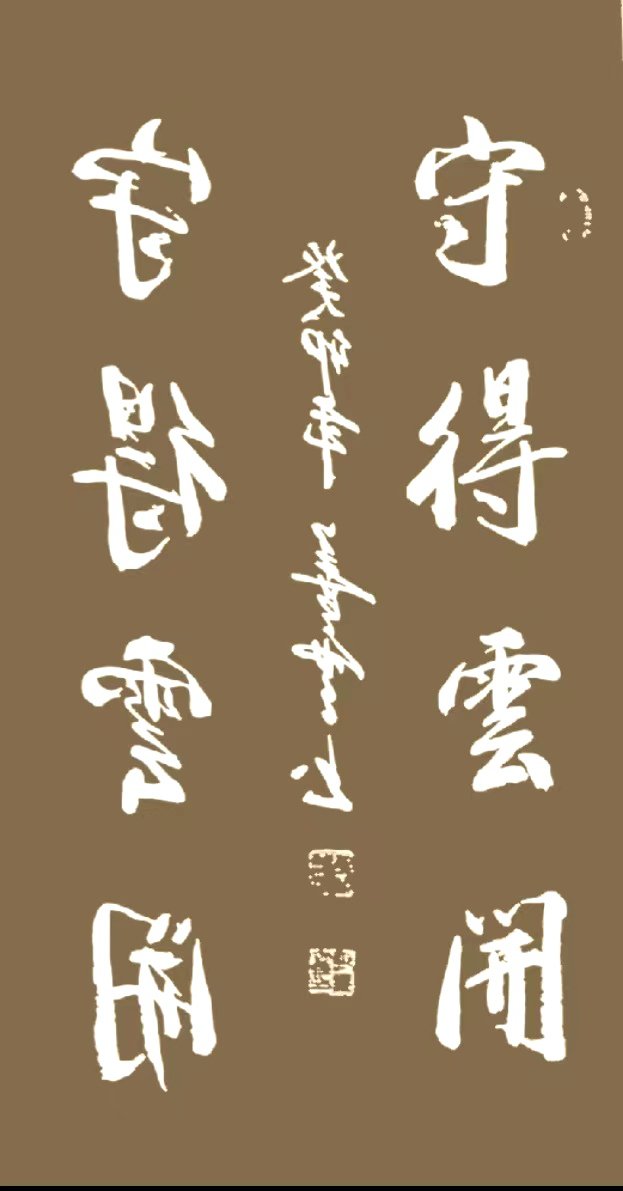 守得雲開
癸卯年 书
守得雲開